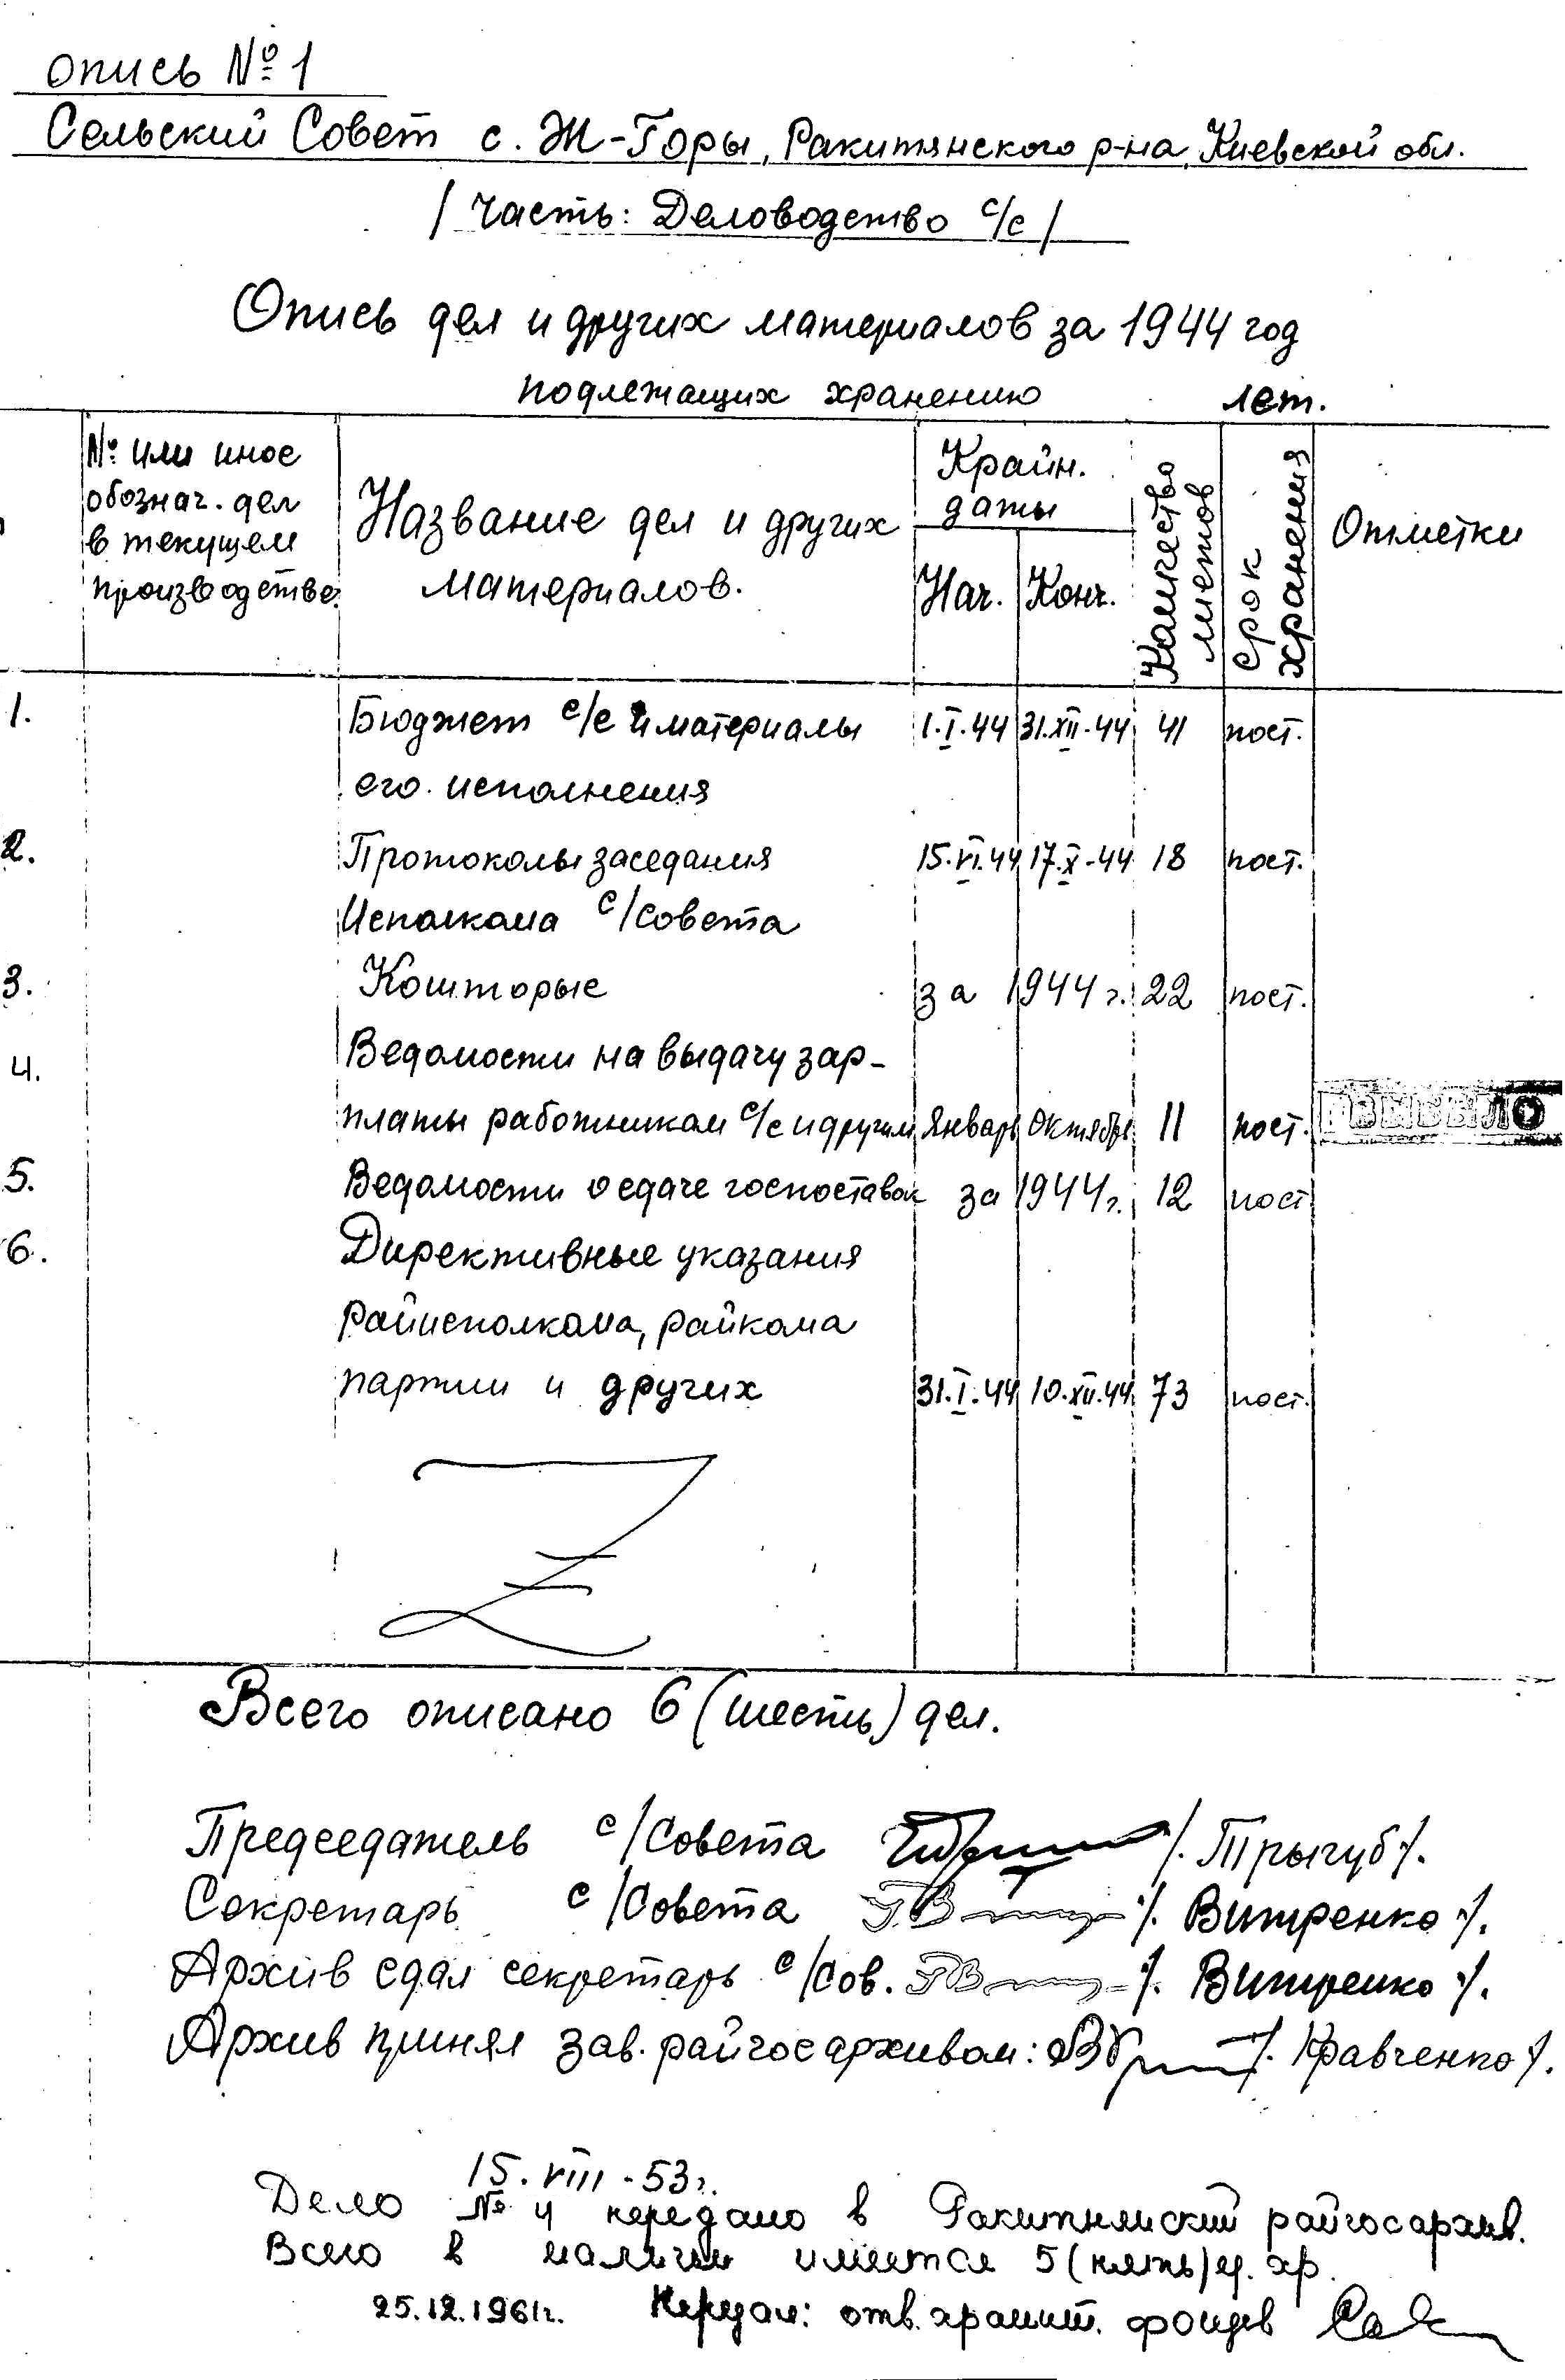 опись № 1
Сельский Совет с. Ж-Горы, Ракитянского р-на, Киевской обл.
/ Часть: Деловодство с/с /
Опись дел и других материалов за 1944 год
подлежащих хранению лет.
№ или иное обознач. дел в текущем производстве.
Название дел и других материалов.
Крайн. даты
Нач. Конч.
Количество листов
срок хранения
Отметки
1. Бюджет с/с и материалы 1.I.44 31.XII.44 41 пост.
его исполнения
2. Протоколы заседания 15.VI.44 17.X.44 18 пост.
Исполкома с/совета
3. Кошторыс за 1944 г. 22 пост.
4. Ведомости на выдачу зар-
платы работникам с/с и другим Январь Октябрь 11 пост. ВЫБЫЛО
5. Ведомости о сдаче госпоставок за 1944 г. 12 пост
6. Директивные указания
райисполкома, райкома
партии и других 31.I.44 10.XII.44 73 пост.
Всего описано 6 (шесть) дел.
Председатель с/совета /. Трыгуб ./.
Секретарь с/совета /. Витренко ./.
Архив сдал секретарь с/сов. /. Витренко ./.
Архив принял зав. райгосархивом: /. Кравченко /.
15.VIII-53г.
Дело № 4 передано в Ракитнянский райгосархив.
Всего в наличии имеется 5 (пять) ед. хр.
25.12.1961г. Передал: отв. хранит. фондов